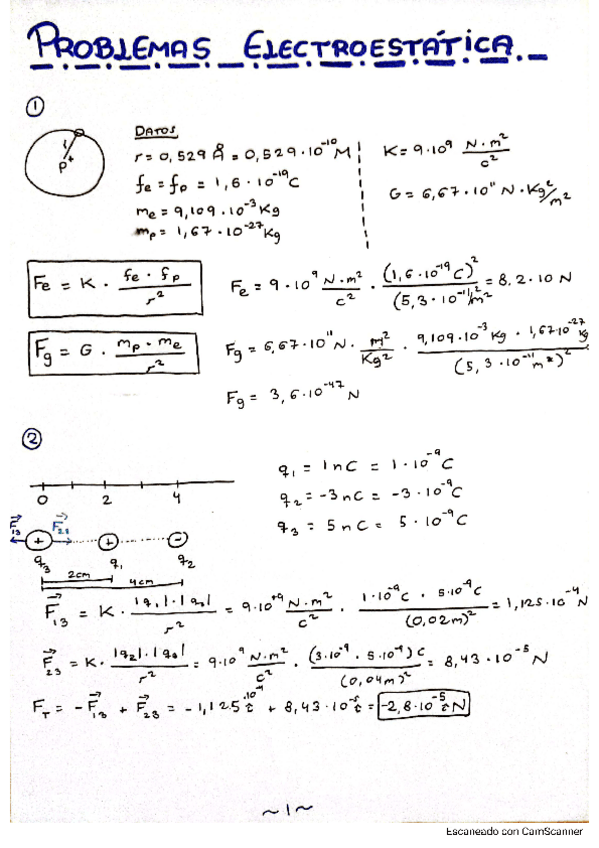 PROBLEMAS ELECTROESTÁTICA
①
P+
DATOS
r = 0,529 Å = 0,529·10⁻¹⁰ M
fe = fp = 1,6·10⁻¹⁹ C
me = 9,109·10⁻³ Kg
mp = 1,67·10⁻²⁷ Kg
K = 9·10⁹ N·m²/c²
G = 6,67·10¹¹ N·Kg²/m²
Fe = K · fe·fp/r²
Fe = 9·10⁹ N·m²/c² · (1,6·10⁻¹⁹ C)²/(5,3·10⁻¹¹)²m² = 8.2·10 N
Fg = G · mp·me/r²
Fg = 6,67·10¹¹ N· m²/Kg² · 9,109·10⁻³ Kg · 1,67·10⁻²⁷ Kg/(5,3·10⁻¹¹ m)²
Fg = 3,6·10⁻⁴⁷ N
②
0 2 4
q₁ = 1nC = 1·10⁻⁹ C
q₂ = -3nC = -3·10⁻⁹ C
q₃ = 5nC = 5·10⁻⁹ C
F₁₃ F₂₃
+ + -
q₃ q₁ q₂
2cm
4cm
F₁₃ = K · |q₁|·|q₃|/r² = 9·10⁺⁹ N·m²/c² · 1·10⁻⁹C · 5·10⁻⁹C/(0,02m)² = 1,125·10⁻⁴ N
F₂₃ = K · |q₂|·|q₃|/r² = 9·10⁹ N·m²/c² · (3·10⁻⁹ · 5·10⁻⁹) C/(0,04m)² = 8,43·10⁻⁵ N
F_T = -F₁₃ + F₂₃ = -1,125·10⁻⁴ + 8,43·10⁻⁵ = -2,8·10⁻⁵ N
~1~
Escaneado con CamScanner